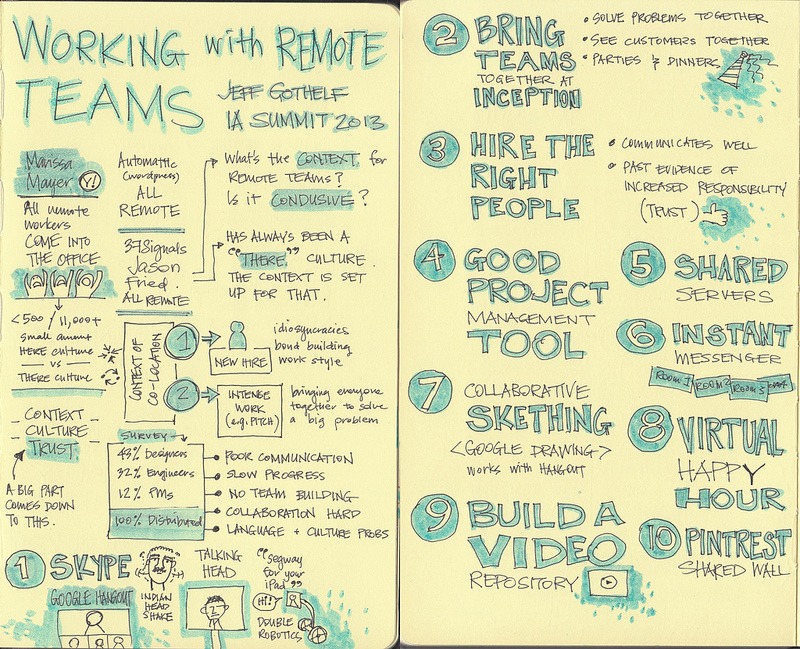 WORKING with REMOTE
TEAMS
JEFF GOTHELF
IA SUMMIT 2013
Marissa
Mayer Y!
All remote
workers
COME INTO
THE OFFICE
<500 / 11,000+
small amount
HERE culture
VS
THERE culture
CONTEXT
CULTURE
TRUST
A BIG PART
COMES DOWN
TO THIS.
Automattic
(wordpress)
ALL
REMOTE
37Signals
Jason
Fried.
ALL REMOTE
What's the CONTEXT for
REMOTE TEAMS?
Is it CONDUSIVE?
HAS ALWAYS BEEN A
"THERE" CULTURE.
THE CONTEXT IS SET
UP FOR THAT.
CONTEXT OF
CO-LOCATION
1
NEW HIRE
idiosyncracies
bond building
work style
2
INTENSE
WORK
(e.g. PITCH)
bringing everyone
together to solve
a big problem
SURVEY
43% Designers
32% Engineers
12% PMs
100% Distributed
POOR COMMUNICATION
SLOW PROGRESS
NO TEAM BUILDING
COLLABORATION HARD
LANGUAGE + CULTURE PROBS
1 SKYPE
GOOGLE HANGOUT
INDIAN
HEAD
SHAKE
TALKING
HEAD
"segway
for your
iPad"
Hi!!
DOUBLE
ROBOTICS
2 BRING
TEAMS
TOGETHER AT
INCEPTION
SOLVE PROBLEMS TOGETHER
SEE CUSTOMERS TOGETHER
PARTIES & DINNERS
3 HIRE THE
RIGHT
PEOPLE
COMMUNICATES WELL
PAST EVIDENCE OF
INCREASED RESPONSIBILITY
(TRUST)
4 GOOD
PROJECT
MANAGEMENT
TOOL
5 SHARED
SERVERS
6 INSTANT
MESSENGER
ROOM 1 ROOM 2 ROOM 3
7 COLLABORATIVE
SKETHING
<GOOGLE DRAWING>
works with HANGOUT
8 VIRTUAL
HAPPY
HOUR
9 BUILD A
VIDEO
REPOSITORY
10 PINTREST
SHARED WALL